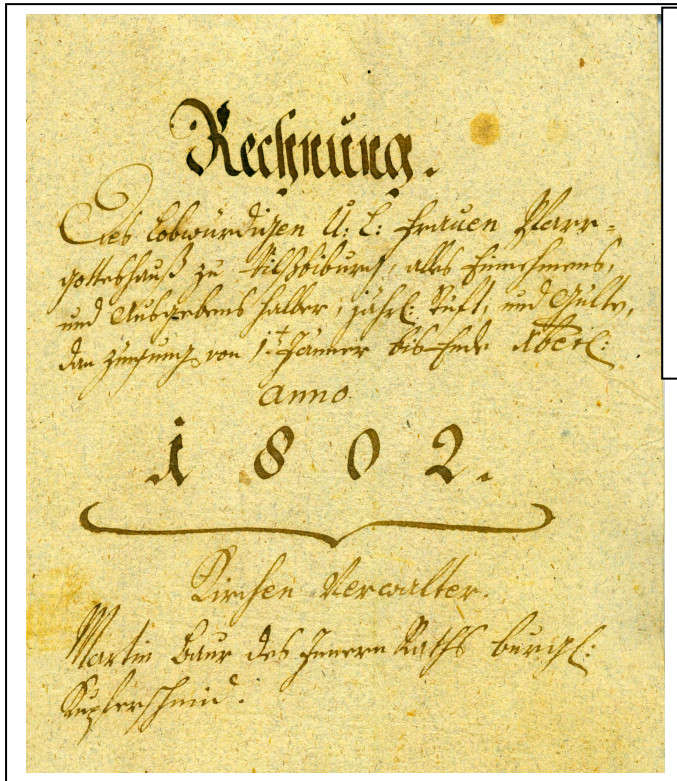 Rechnung.
Des Lobwürdigen U: L: Frauen Pfarr-
gotteshauß zu Vilßbiburg, alles Einnehmens,
und Ausgebens halber, jährl: Stift, und Gülte,
dan von 1t Jänner bis Ende Xberl:
anno
1802.
Kirchen Verwalter.
Martin Baur des Innern Raths burgl:
Kupferschmid.